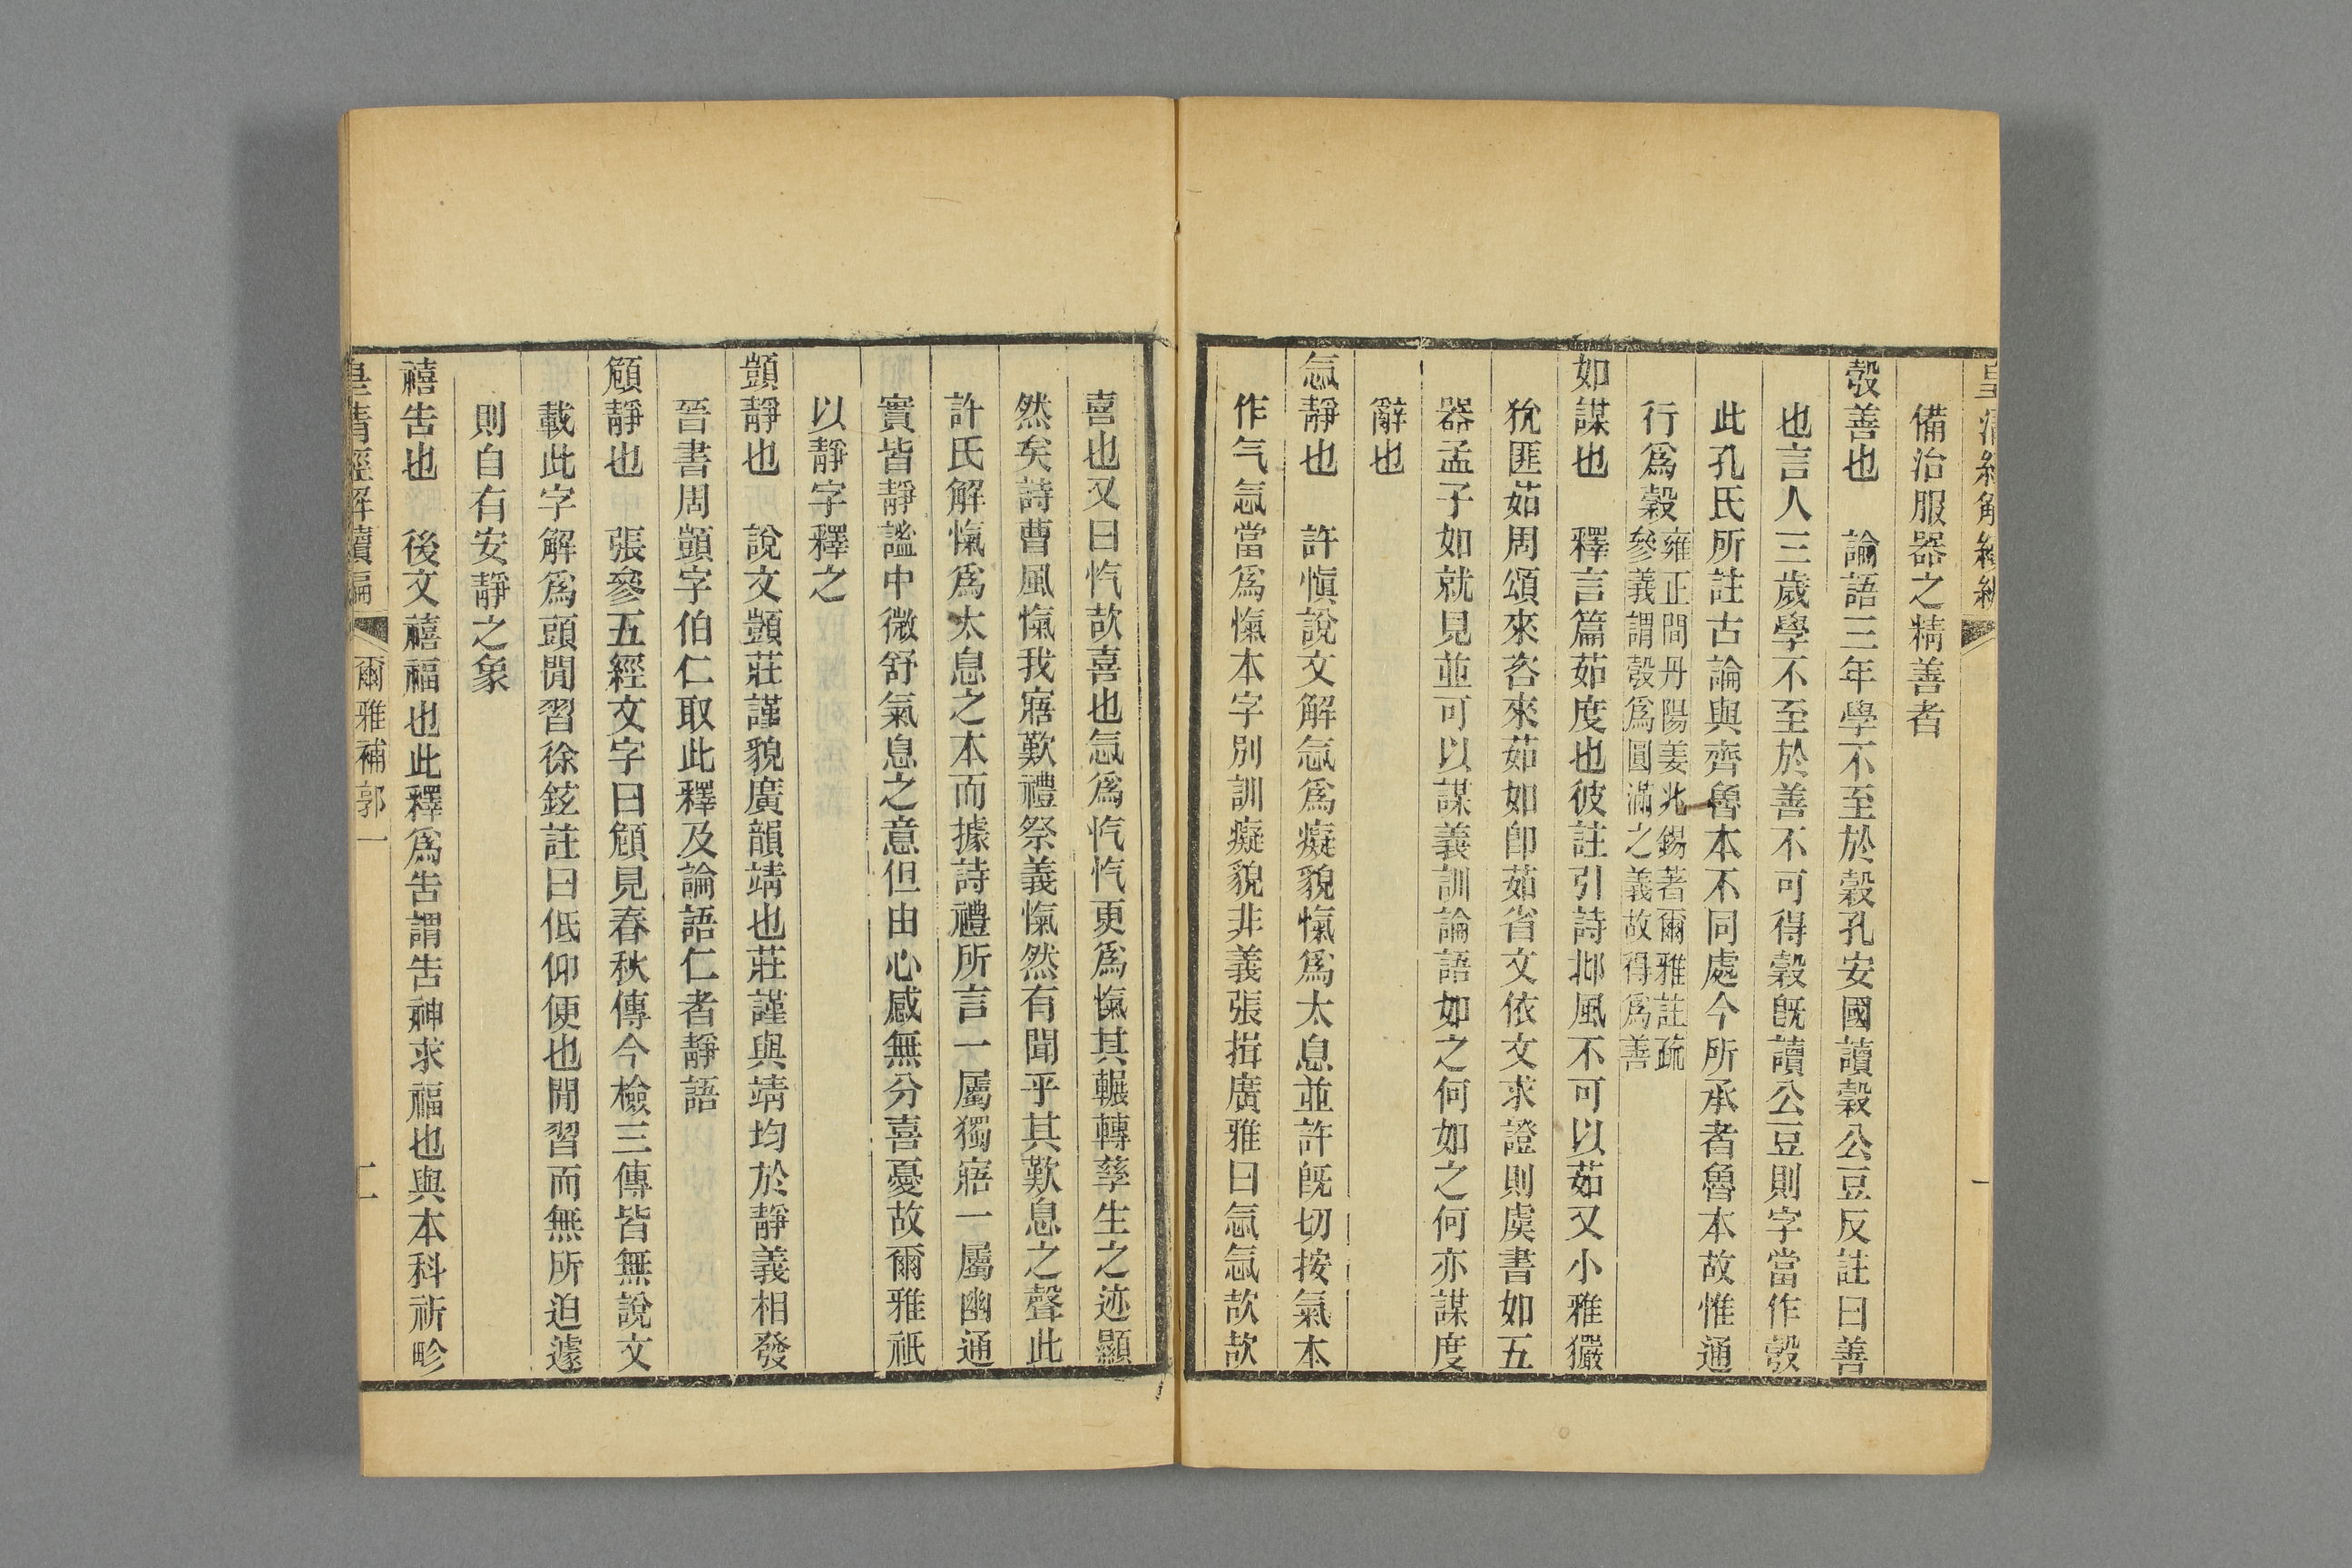 備治服器之精善者
彀善也　論語三年學不至於穀孔安國讀穀公豆反註曰善
也言人三歲學不至於善不可得穀旣讀公豆則字當作彀
此孔氏所註古論與齊魯本不同處今所承者魯本故惟通
行爲穀雍正間丹陽姜兆錫著爾雅註疏
參義謂彀爲圓滿之義故得爲善
如謀也　釋言篇茹度也彼註引詩邶風不可以茹又小雅玁
狁匪茹周頌來咨來茹如卽茹省文依文求證則虞書如五
器孟子如就見並可以謀義訓論語如之何如之何亦謀度
辭也
忥靜也　許愼說文解忥爲癡貌愾爲太息並許旣切按氣本
作气忥當爲愾本字別訓癡貌非義張揖廣雅曰忥忥欯欯
喜也又曰忾欯喜也忥爲忾忾更爲愾其輾轉孳生之迹顯
然矣詩曹風愾我寤歎禮祭義愾然有聞乎其歎息之聲此
許氏解愾爲太息之本而據詩禮所言一屬獨寤一屬幽通
實皆靜謐中微舒氣息之意但由心感無分喜憂故爾雅祇
以靜字釋之
顗靜也　說文顗莊謹貌廣韻靖也莊謹與靖均於靜義相發
晉書周顗字伯仁取此釋及論語仁者靜語
頠靜也　張參五經文字曰頠見春秋傳今檢三傳皆無說文
載此字解爲頭閒習徐鉉註曰低仰便也閒習而無所迫遽
則自有安靜之象
禧告也　後文禧福也此釋爲告謂告神求福也與本科祈畛
皇清經解續編　爾雅補郭一　二